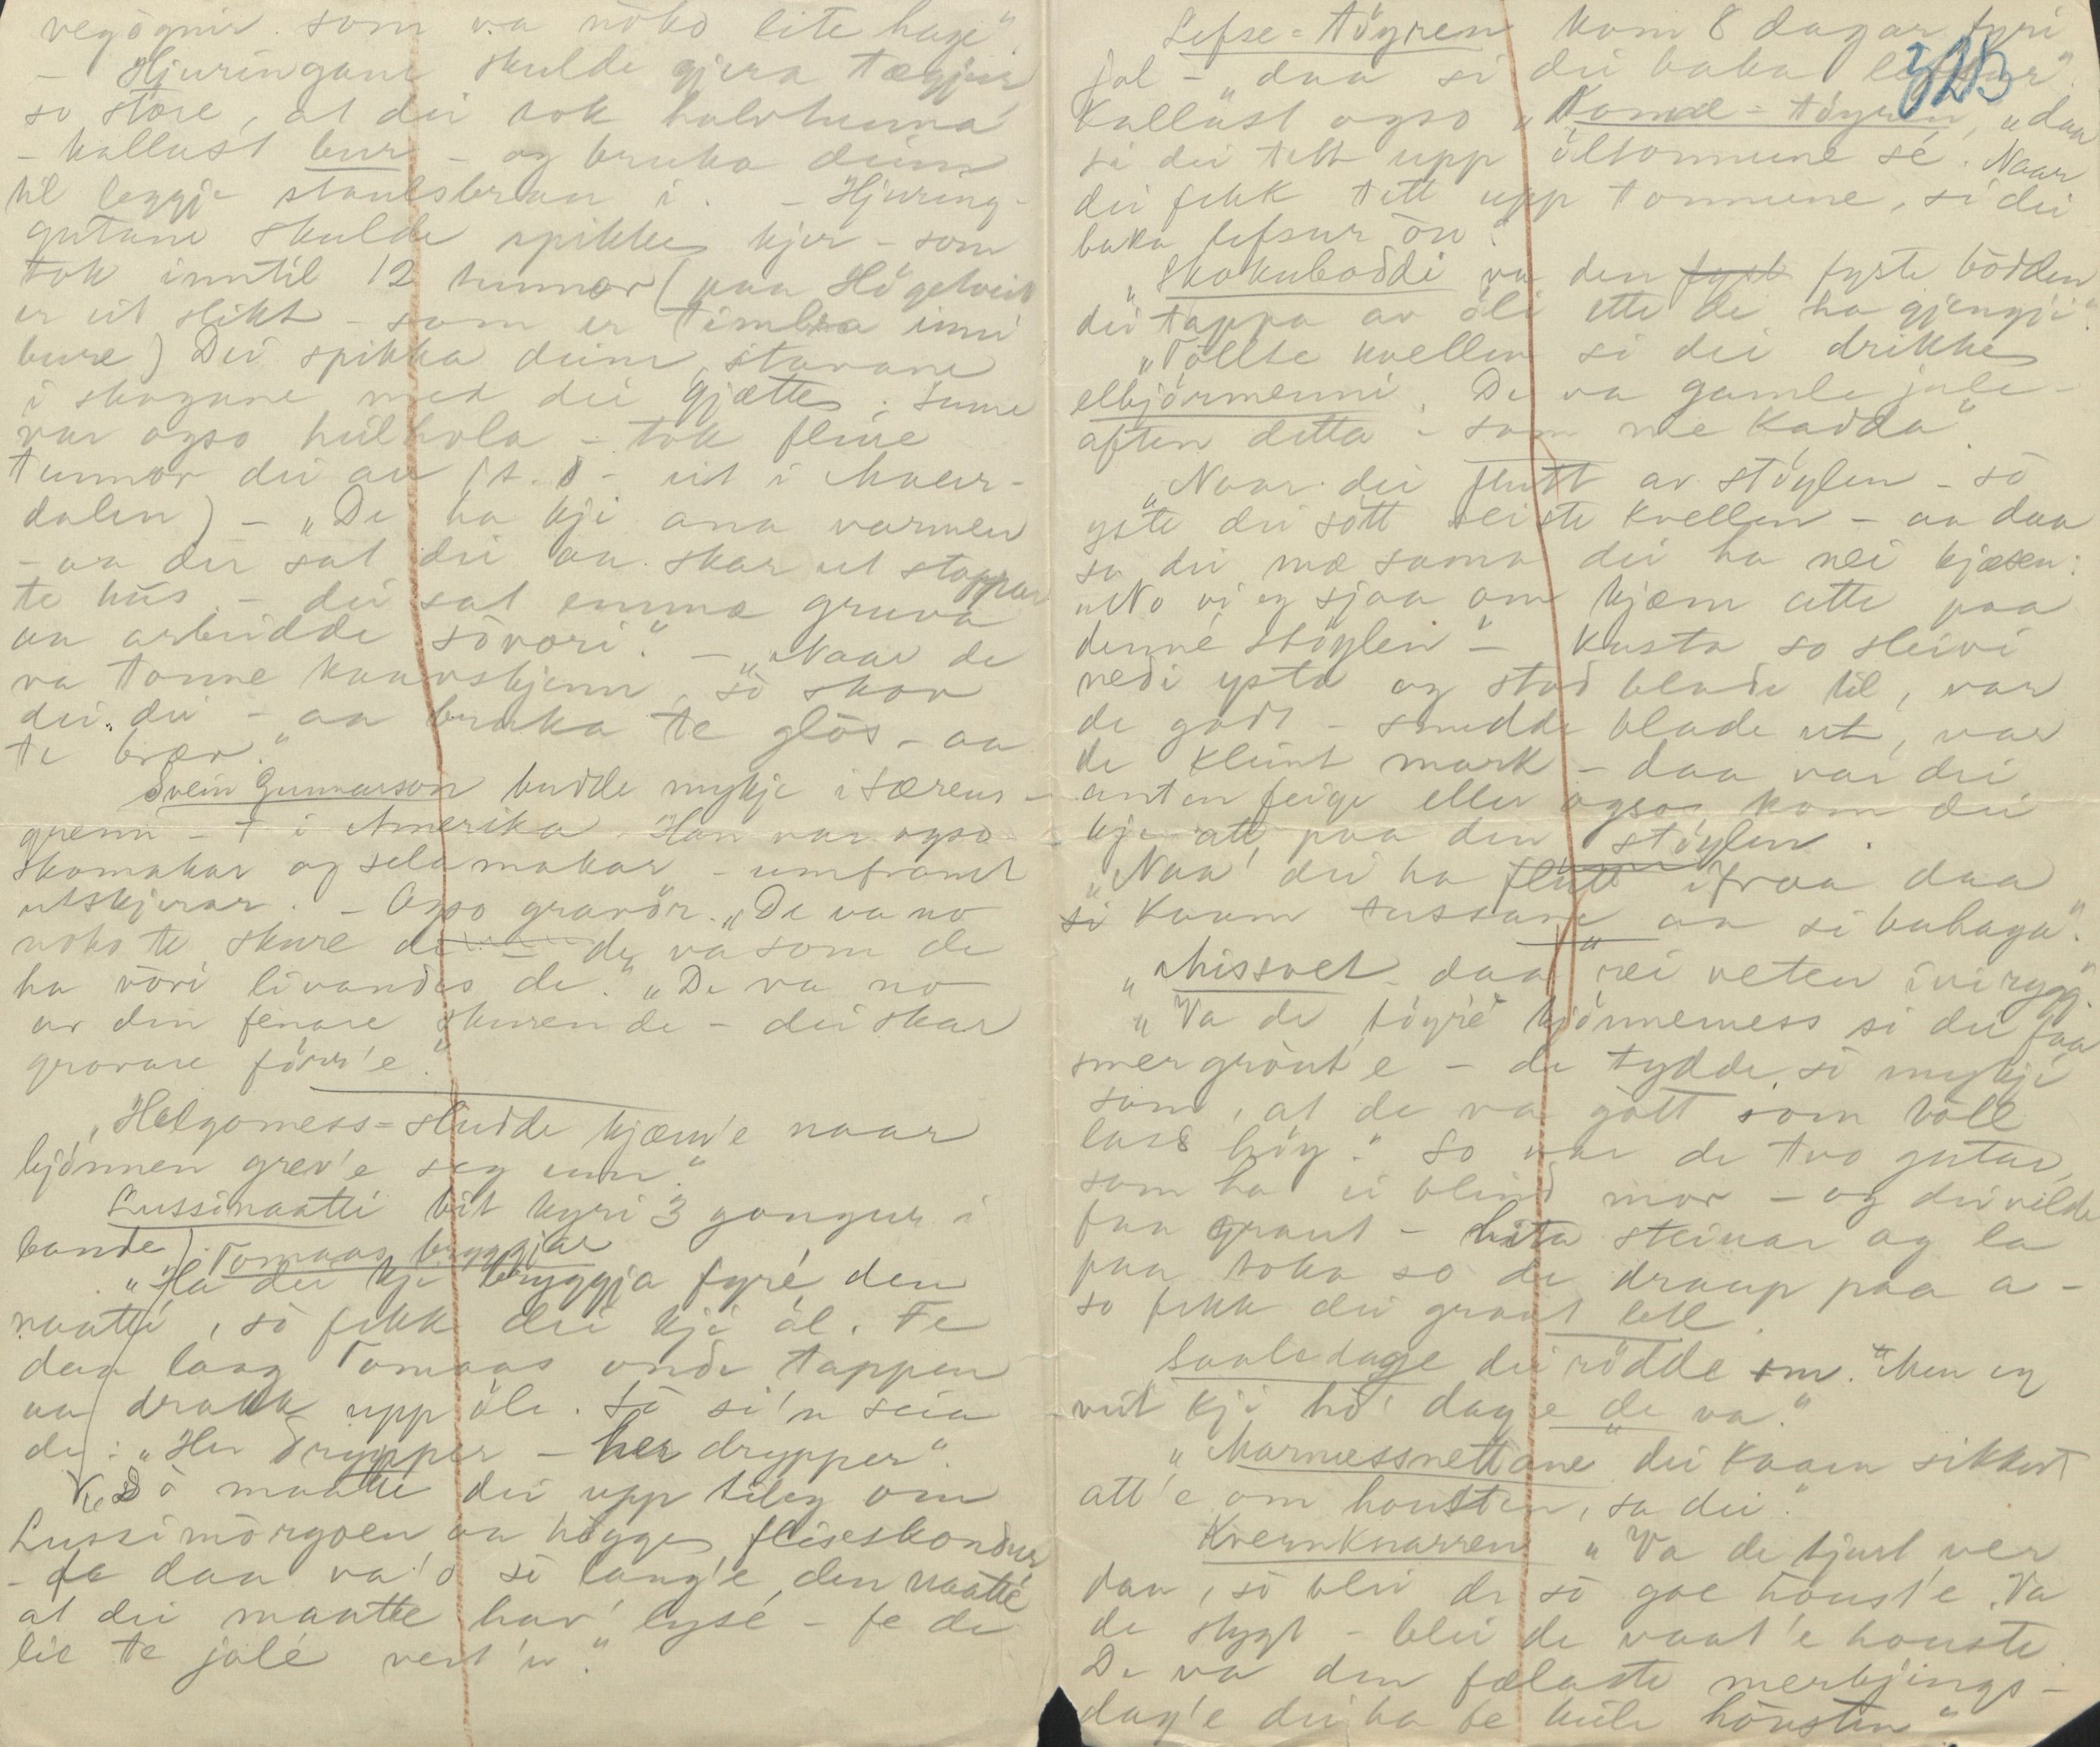 vegögnir som va nöko lite hage".
- Hjuringane skulde gjera tægjur
so store, at dei tok halvtunna
- kallast bur - og bruka deim
til leggje staulsbrau i. - Hjuring-
gutane skulde spikke kjer - som
tok inntil 12 tunnor (paa Högetveit
er eit slikt - som er timbra inni
bure) Dei spikka deim, stavane
i skogane med dei gjætte; sume
var ogso heilhola - tok fleire
tunnor dei au (t. d. - eit i Maur-
dalen) - "De ha kji ana varmen
- aa der sat dei aa skar ut stoppar
te hus - dei sat emma gruva
aa arbeidde sövori." - "Naar de
va tonne kaavskjenn, sö skov
dei dei - aa bruka te glös - aa
te brær."
Svein Gunnarson budde mykje i Særens-
grenni - † i Amerika. Han var ogso
skomakar og selamakar - umframt
utskjerar. - Ogso gravör. "De va no
noko te skure de - de va som de
ha vöri livandes de." "De va no
av den finare skuren de - dei skar
grovare förr'e."
"Helgomess-sludde kjæm'e naar
bjönnen grev'e seg inn."
Lussinaatti bit kyri 3 gongur i
bande). Tomaas bryggjar
"Ha dei kji bryggja fyre den
naatti, sö fekk dei kji öl. Fe
daa laag Tomaas unde tappen
aa drakk upp öle. Sö si'n seia
de: "Her drypper - her drypper".
Sö maatte dei upp tileg om
Lussimörgoen aa högge fliseskondur
- fe daa va'o sö lang'e, den naatte
at dei maatte hav' lyse - fe de
lie te jole veit'u."
Lefse-töyren kom 8 dagar fyri
jol - "daa si dei baka lefsur".
Kallast ogso "Tomæ-töyren, "daa
si dei tett upp öltonnune se. Naar
dei fekk tett upp tonnune, si dei
baka lefsur öu."
"Skokuboddi va den fyst fyste bodden
dei tappa av öli ette de ha gjengji".
"Tollte kvellen si dei drikke
elbjörmenni. De va gamle jole-
aften detta - som me kadda".
"Naar dei flutt av stöylen - sö
yste dei sött seiste kvellen - aa daa
sa dei mæ sama dei ha nei kjæsen:
"No vi eg sjaa om kjæm atte paa
denne stöylen" - Kasta so sleivi
nedi ysta og stod blade til, var
de godt - snudde blade ut, var
de kleint mark - daa var dei
anten feige eller ogso kom dei
kje att paa den stöylen.
"Naa' dei ha flutt ifraa daa
si kaam tussane aa si bahaga".
"Missvet - daa rei veten ivi rygg"
"Va de töyre kjönnemess si dei faa
smergraut'e - de tydde sö mykji
som, at de va gott som toll
lass höy." So var de tvo gutar,
som ha ei blind mor - og dei vilde
faa graut - hita steinar og la
paa toka so de draup paa a -
so fekk dei graut lell.
Saaledage dei rödde om. "Men eg
veit kji ho' dag'e de va."
"Marmessnettane dei kaam sikkert
att'e om housten, sa dei".
Kvernknarren "Va de kjurt ver
daa, sö blei de sö goe houst'e. Va
de stygt - blei de vaat'e houste.
De va den fælaste merkjings-
dag'e dei ha fe heile housten"
323